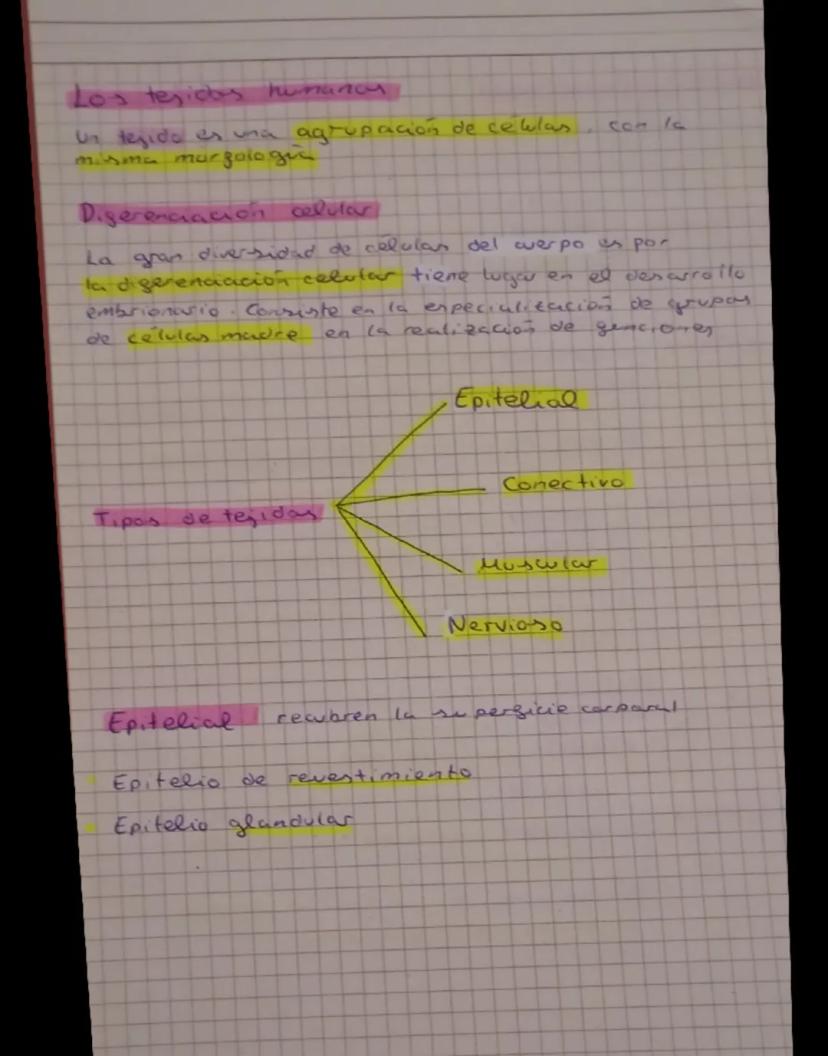 Los tejidos humanos
Un tejido es una agrupación de células, con la
misma morfología
Diferenciación celular
La gran diversidad de células del cuerpo es por
la diferenciación celular tiene lugar en el desarrollo
embrionario. Consiste en la especialización de grupos
de células madre en la realización de funciones
Epitelial
Conectivo
Tipos de tejidos
Muscular
Nervioso
Epitelial recubren la superficie corporal
Epitelio de revestimiento
Epitelio glandular